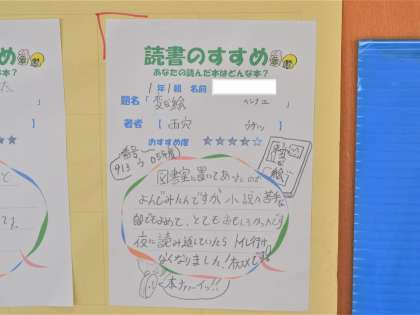 読書のすすめ
あなたの読んだ本はどんな本?
1年1組 名前
題名「変な絵 ヘンナエ 」
著者【 雨穴 ウケツ 】
おすすめ度 ★★★★
番号
913 ウ
変な絵
図書室に置いてあったので
よんでみたんですが 小説の苦手な
でもよめて、とてもおもしろかったです
夜に読み返していたら トイレ行け
なくなりました!オススメです!
すすめ
本だ?
た。
】
★★★★
と